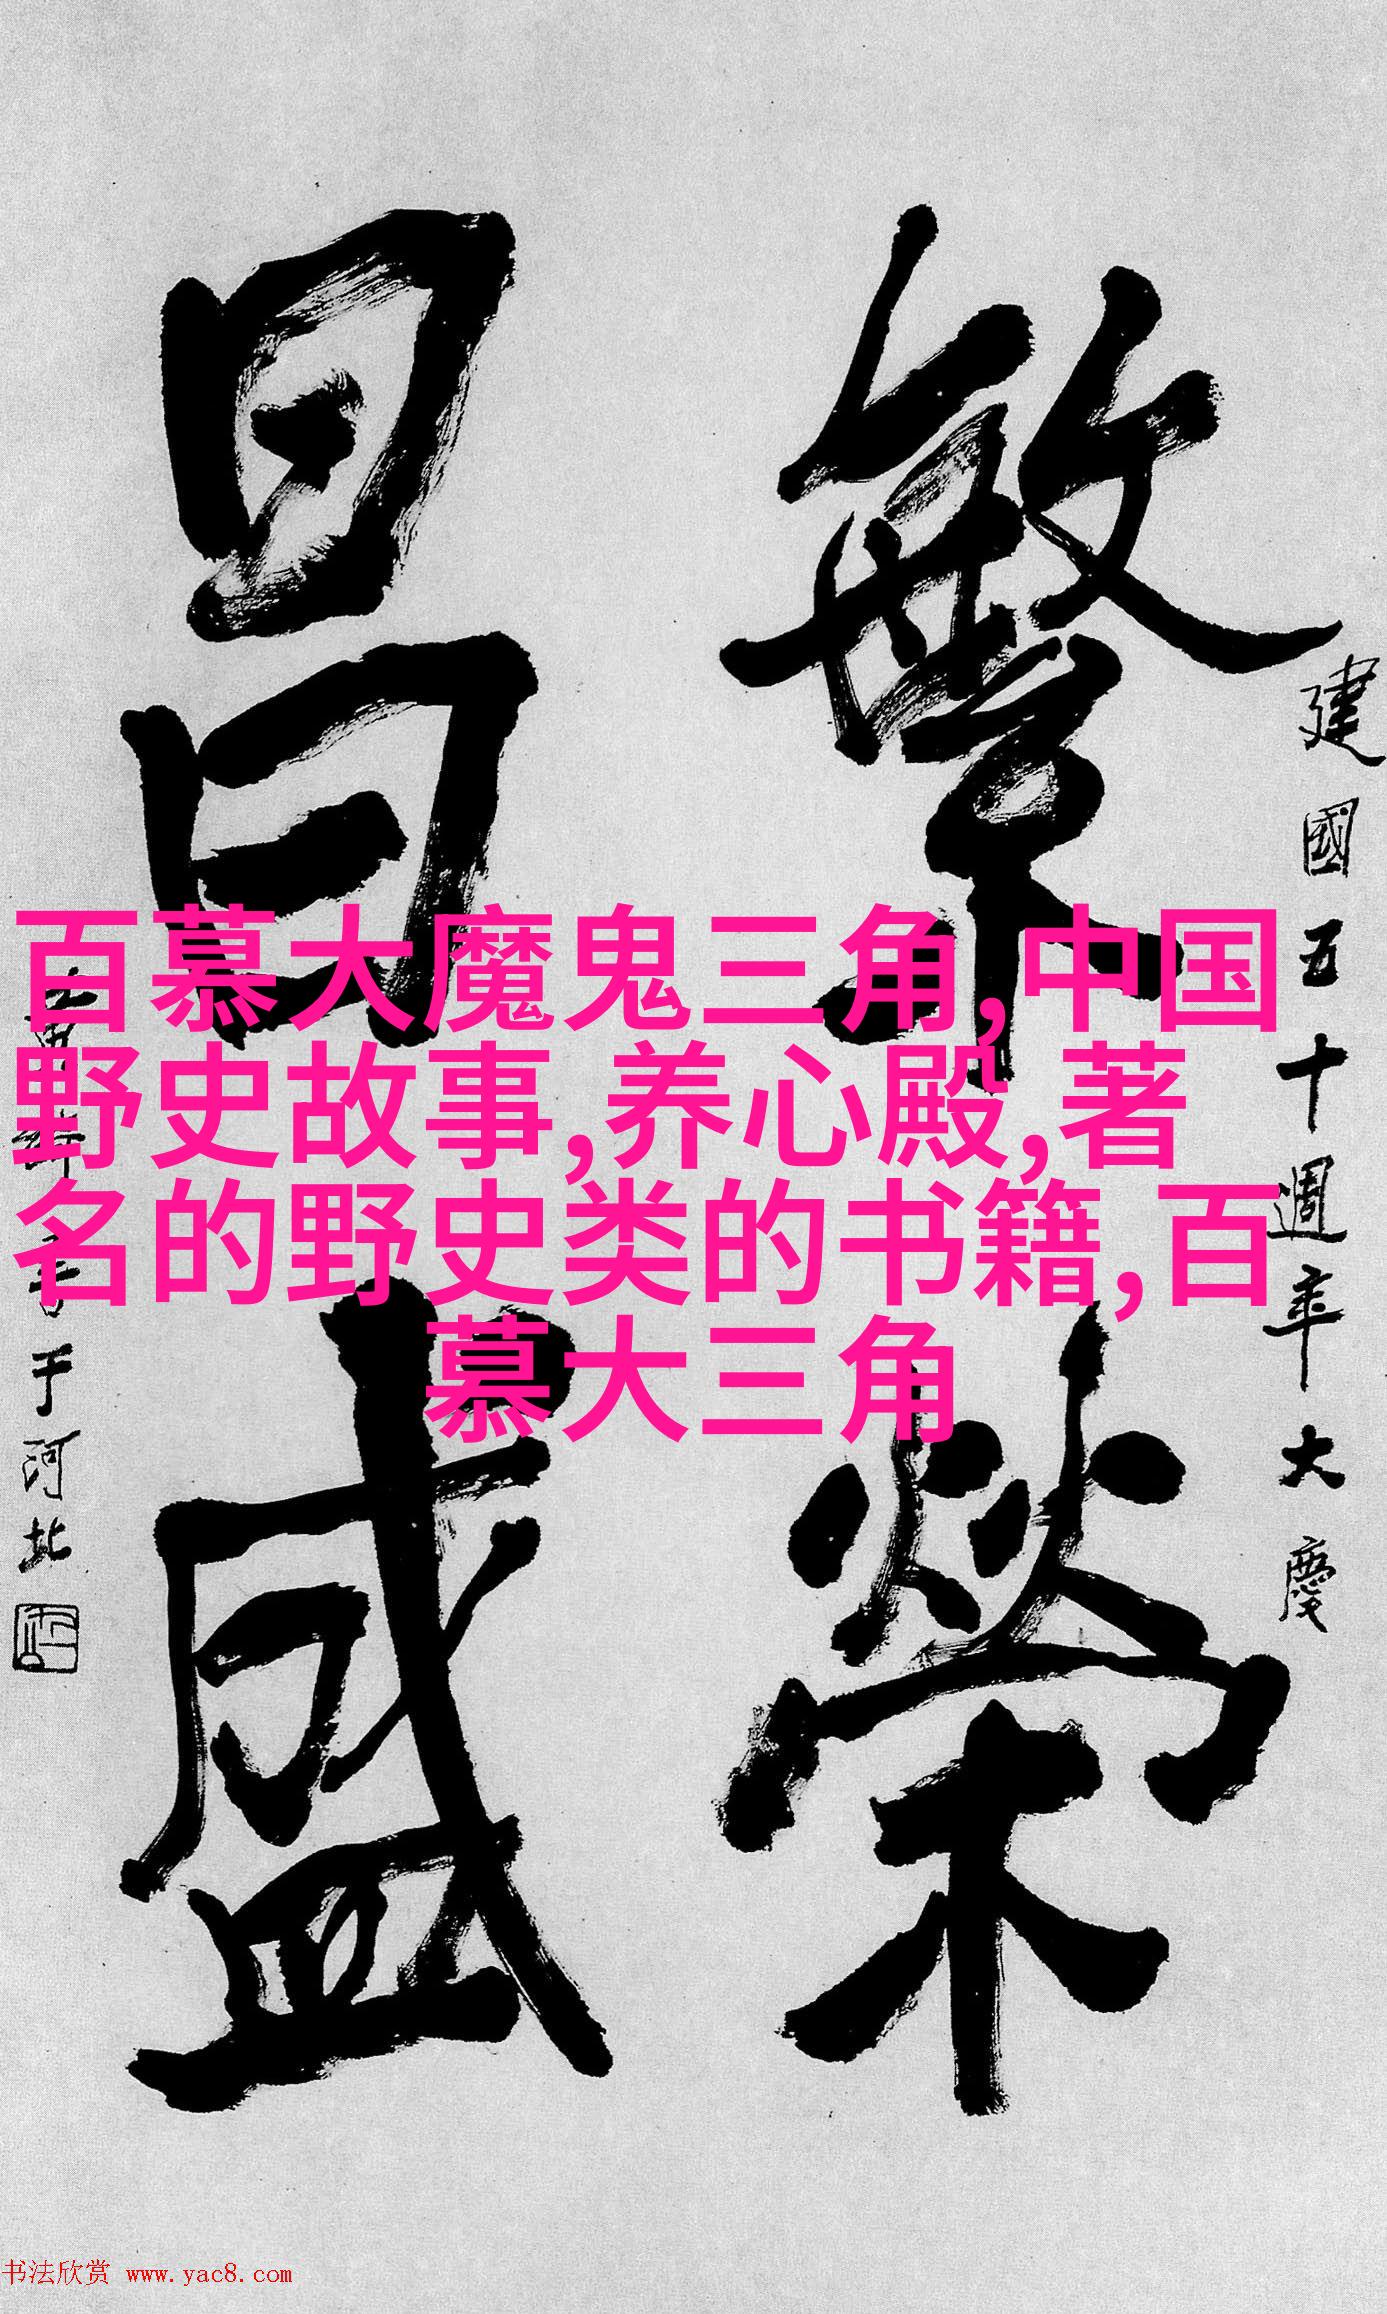 繁榮
昌盛
建國五十週年大慶
于河北
百慕大魔鬼三角,中国
野史故事,养心殿,著
名的野史类的书籍,百
慕大三角
书法欣赏 www.yac8.com